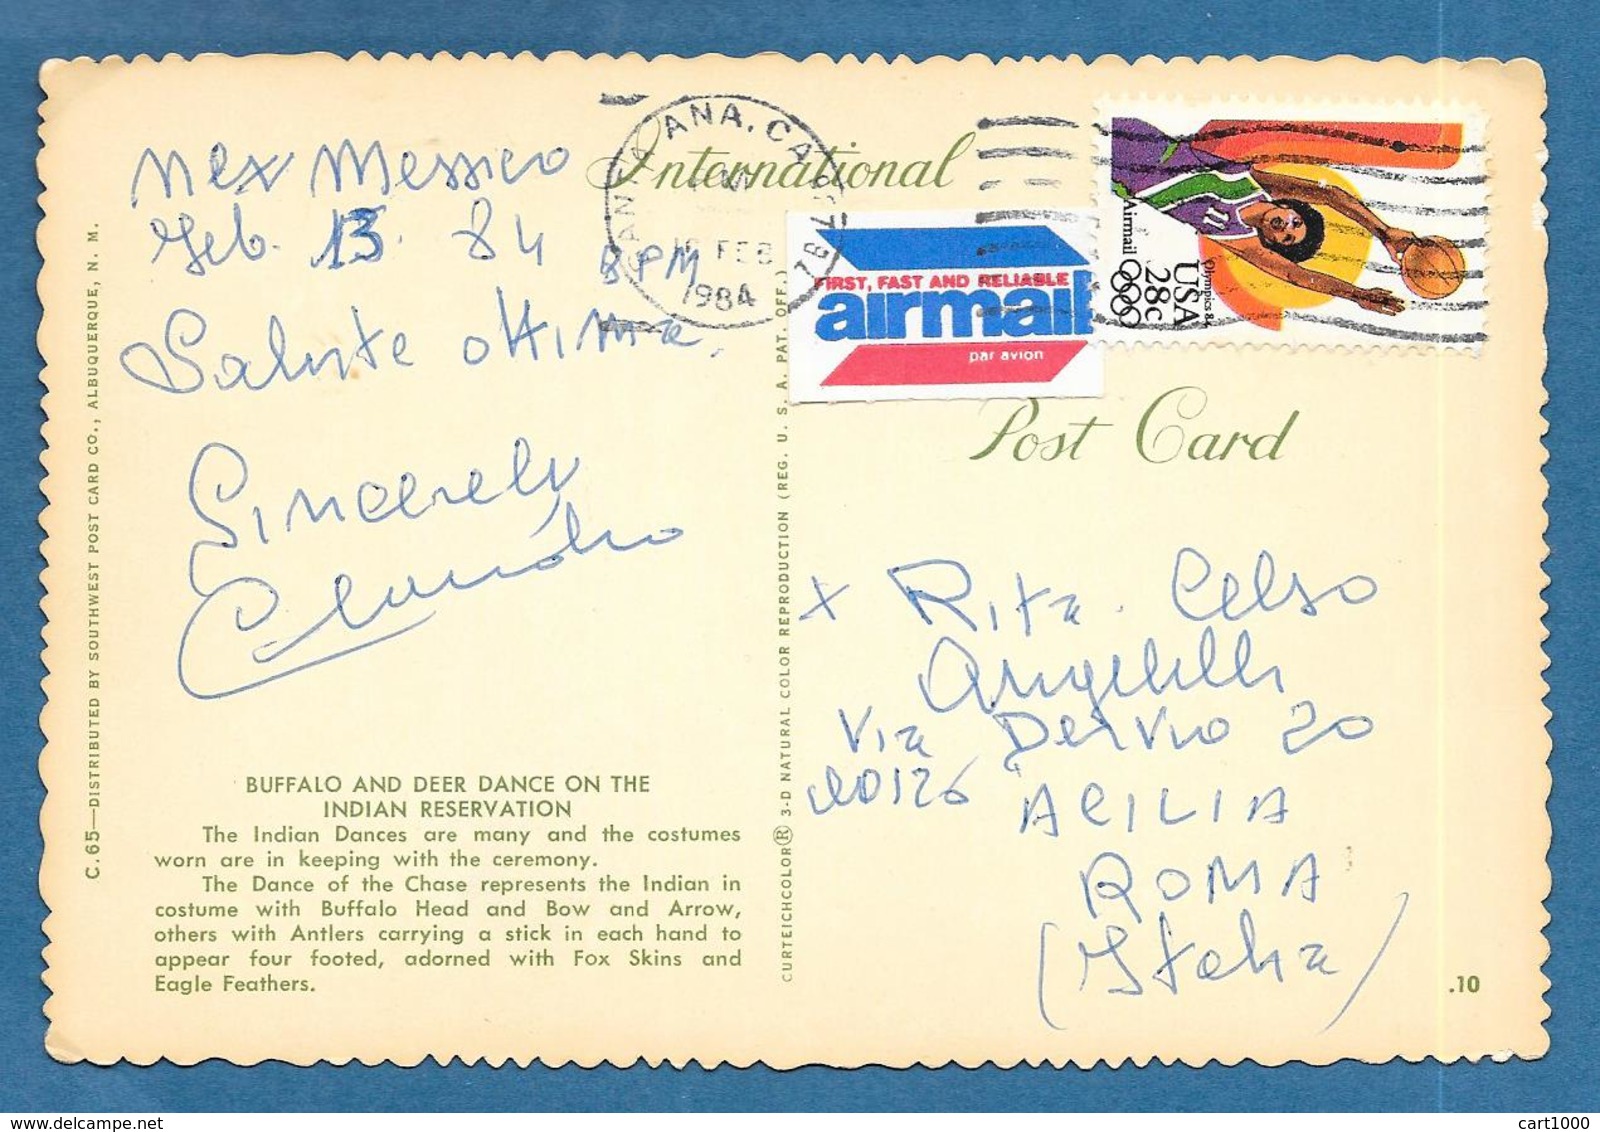 Nex Messico
Feb. 13. 84 8 PM
Salute ottima.
Sincerely
Claudio
International
Post Card
SANTA ANA, CA
FEB
1984
FIRST, FAST AND RELIABLE
airmail
par avion
Olympics 84
USA
28c
Airmail
11
x Rita. Celso
Angelilli
Via Dervio 20
00126 ACILIA
ROMA
(Italia)
BUFFALO AND DEER DANCE ON THE
INDIAN RESERVATION
The Indian Dances are many and the costumes
worn are in keeping with the ceremony.
The Dance of the Chase represents the Indian in
costume with Buffalo Head and Bow and Arrow,
others with Antlers carrying a stick in each hand to
appear four footed, adorned with Fox Skins and
Eagle Feathers.
C. 65—DISTRIBUTED BY SOUTHWEST POST CARD CO., ALBUQUERQUE, N. M.
CURTEICHCOLOR® 3-D NATURAL COLOR REPRODUCTION (REG. U. S. A. PAT. OFF.)
.10
cart1000